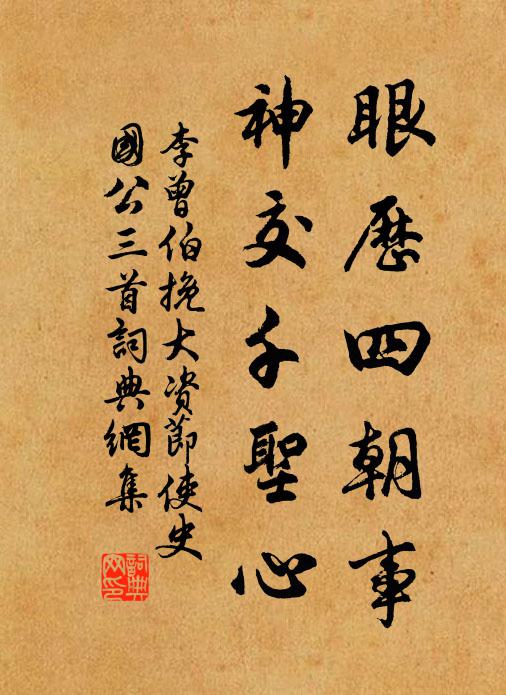 眼歷四朝事
神交千聖心
李曾伯挽大資節使史
國公三首詞典網集
詞典網印